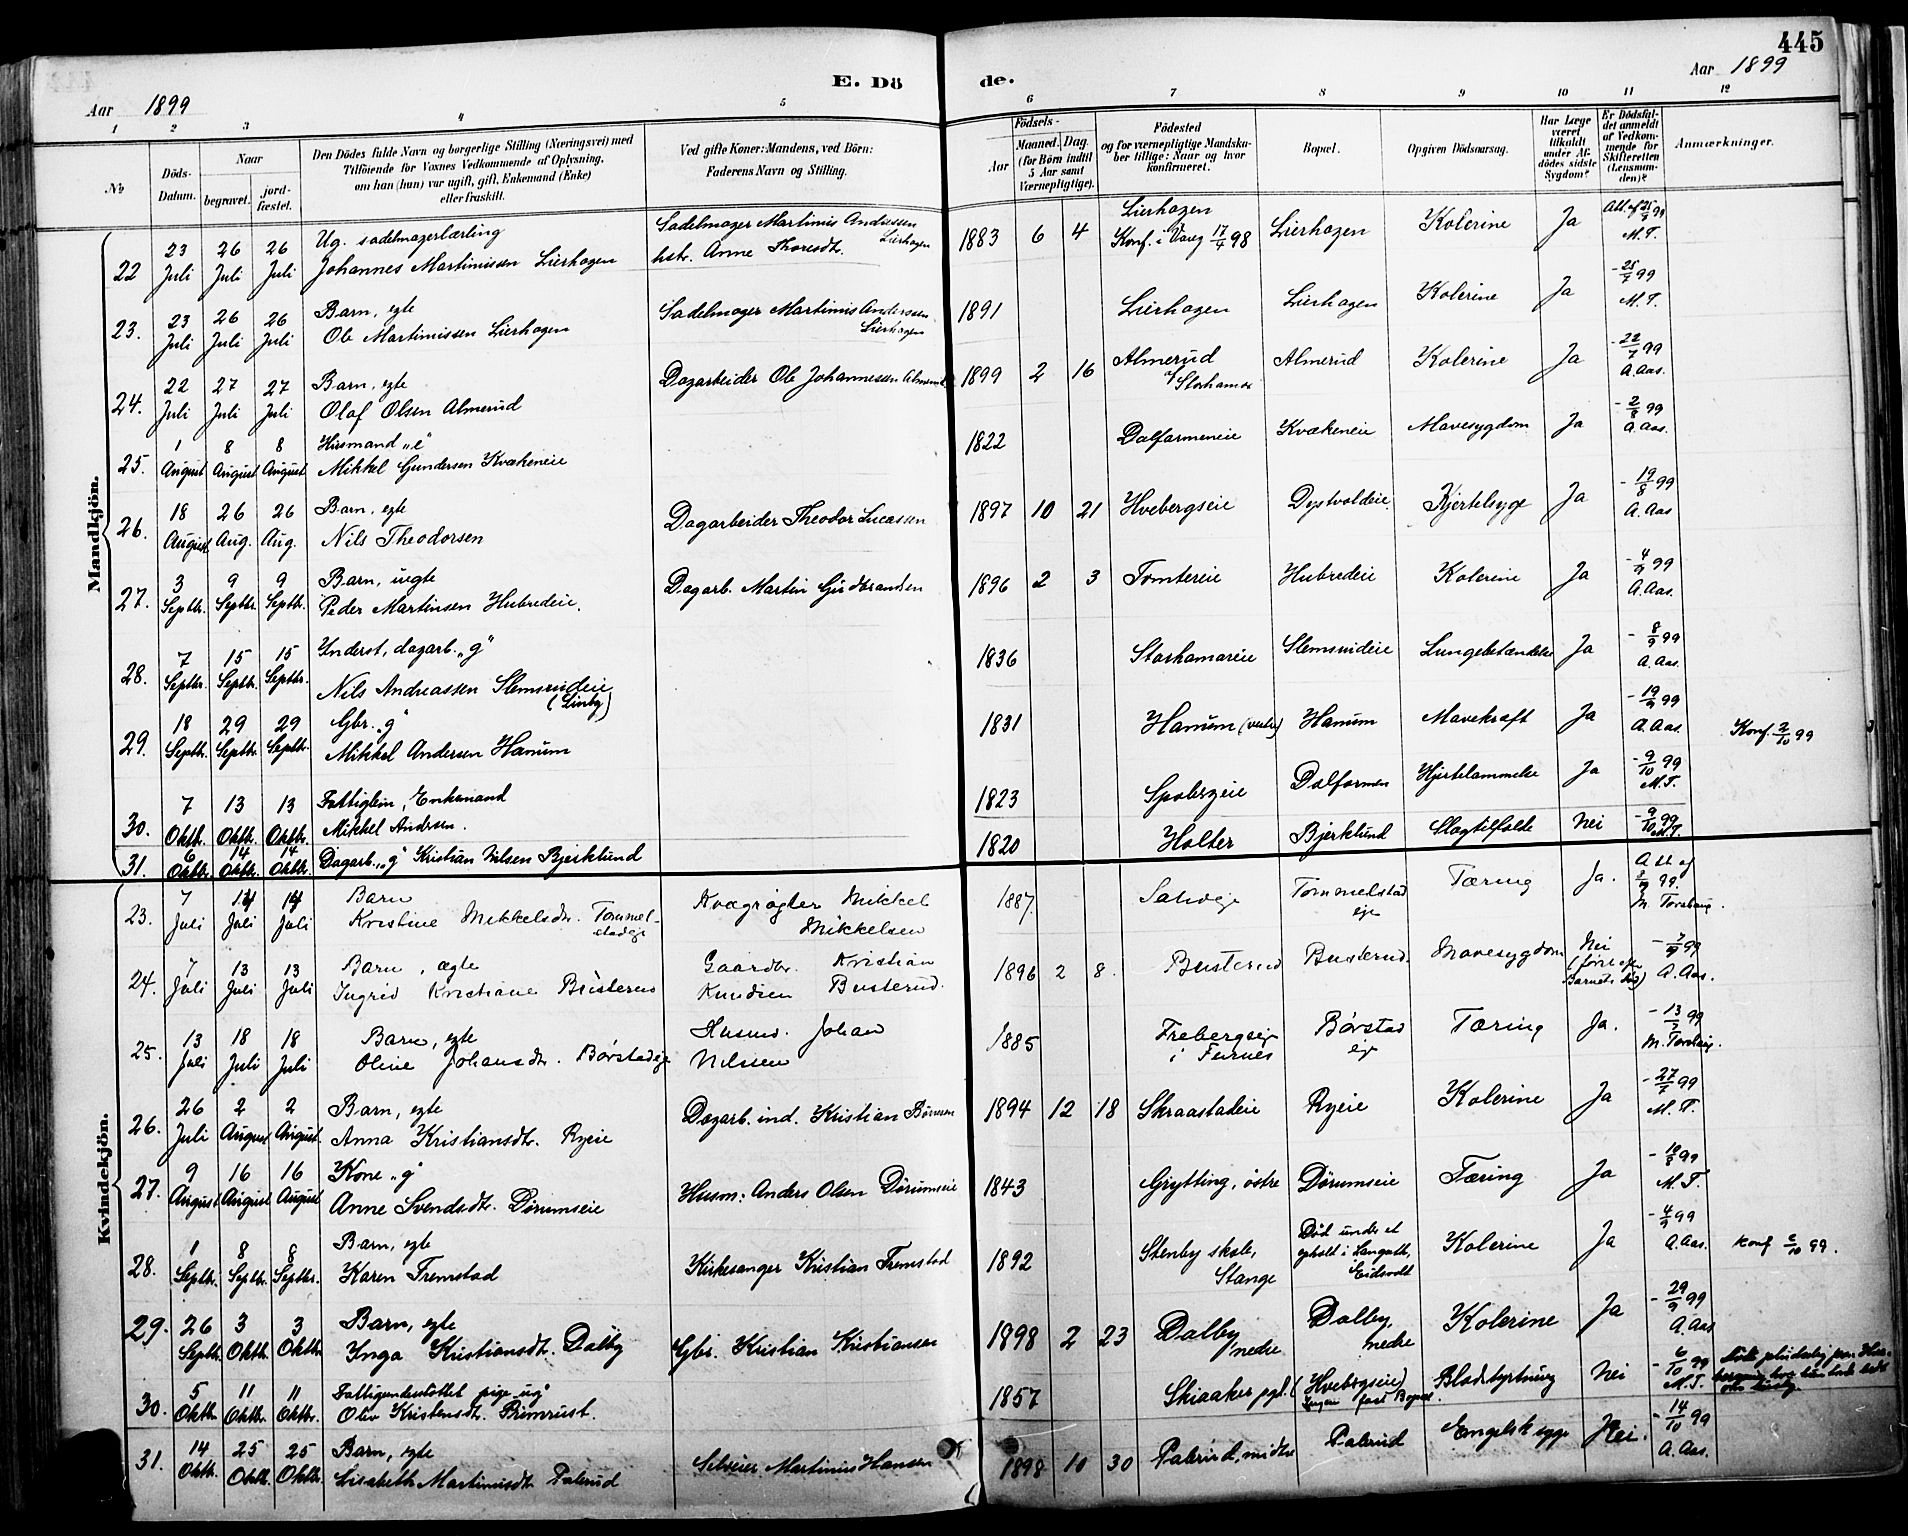 445
E. Dö de.
Aar 1899
Aar 1899
1 2 3 4 5 6 7 8 9 10 11 12
No
Döds-Datum.
Naar
begravet.
jordfæstet.
Den Dödes fulde Navn og borgerlige Stilling (Næringsvei) med
Tilföiende for Voxnes Vedkommende af Oplysning,
om han (hun) var ugift, gift, Enkemand (Enke)
eller fraskilt.
Ved gifte Koner: Mandens, ved Börn:
Faderens Navn og Stilling.
Födsels-
Aar
Maaned. Dag.
(for Börn indtil
5 Aar samt
Værnepligtige).
Födested
og for værnepligtige Mandskaber tillige: Naar og hvor
konfirmeret.
Bopæl.
Opgiven Dödsaarsag.
Har Læge
været
tilkaldt
under Afdödes sidste
Sygdom?
Er Dödsfaldet anmeldt
af Vedkommende for
Skifteretten
(Lensmanden)?
Anmærkninger.
Mandkjön.
22 23 Juli 26 Juli 26 Juli Ug. sadelmagerlærling Johannes Martiniusen Lierhagen Sadelmager Martinius Andersen Lierhagen hstr. Anne Thoresdtr. 1883 6 4 Lierhagen Konf. i Vang 17/4 98 Lierhagen Kolerine Ja Att. af 25/7 99 M.T.
23. 23 Juli 26 Juli 26 Juli Barn, egte Ole Martiniussen Lierhagen Sadelmager Martinius Anderssen Lierhagen 1891 Lierhagen Lierhagen Kolerine Ja - 25/7 99 M.T.
24. 22 Juli 27 Juli 27 Juli Barn, egte Olaf Olsen Almerud Dagarbeider Ole Johannesen Almerud 1899 2 16 Almerud af Storhamar Almerud Kolerine Ja - 22/7 99 A. Aas.
25. 1 August 8 August 8 August Husmand „e“ Mikkel Gundersen Kvækeneie 1822 Dalfarmeneie Kvækeneie Mavesygdom Ja - 2/8 99 A. Aas.
26. 18 August 26 Aug. 26 Aug. Barn, egte Nils Theodorsen Dagarbeider Theodor Lucassen 1897 10 21 Hvebergseie Dystvoldeie Kjertelsyge Ja - 19/8 99 A. Aas
27. 3 Septbr. 9 Septbr. 9 Septbr. Barn, uegte Peder Martinsen Hubredeie. Dagarb. Martin Gudbrandsen 1896 2 3 Tomtereie Hubredeie Kolerine Ja - 4/9 99 A. Aas.
28. 7 Septbr. 15 Septbr. 15 Septbr. Inderst, dagarb. „g“ Nils Andreassen Slemsrudeie (Linby) 1836 Storhamareie Slemsrudeie Lungebetændelse Ja - 8/9 99 A. Aas.
29. 18 Septbr. 29 Septbr. 29 Septbr. Gbr. „g“ Mikkel Andersen Hanum 1831 Hanum (vestre) Hanum Mavekræft Ja - 19/9 99 A. Aas. Konf. 2/10 99
30. 7 Oktbr. 13 Oktbr. 13 Oktbr. Fattiglem, Enkemand Mikkel Andrsen. 1823 Spolergeie Dalfarmen Hjertelammelse Ja - 9/10 99 M.T.
31. 6 Oktbr. 14 Oktbr. 14 Oktbr. Dagarb. „g“ Kristian Nilsen Bjerklund 1820 Holter Bjerklund Slagtilfælde Nei - 9/10 99 M.T.
Kvindekjön.
23. 7 Juli 14 Juli 14 Juli Barn Kristine Mikkelsdtr. Tommelstadeje Kvægrøgter Mikkel Mikkelsen 1887. Salveje Tommelstad eje Tæring Ja. Att af 8/7 99. M. Torshaug.
24. 7 Juli 13 Juli 13 Juli Barn, ægte Ingrid Kristiane Busterud Gaardbr. Kristian Knudsen Busterud. 1896 2 8. Busterud Busterud. Mavesygdom Nei (først efter Barnets død) - 7/7 99 A. Aas.
25. 13 Juli 18 Juli 18 Juli Barn, egte Oline Johansdtr. Børstadeje Husmd. Johan Nilssen 1885 Frebergseje i Furnes Børstad eje Tæring Ja. - 13/7 99 M. Torshaug.
26. 26 Juli 2 August 2 August Barn, egte Anna Kristiansdtr. Ryeie Dagarb. ind. Kristian Børresen 1894 12 18 Skraastadeie Ryeie Kolerine Ja - 27/7 99 M.T.
27. 9 August 16 August 16 August Kone „g“ Anne Svendsdtr. Dørumseie Husm: Anders Olsen Dørumseie 1843 Grytting, østre Dørumseie Tæring Ja - 10/8 99 M.T.
28. 1 Septbr. 8 Septbr. 8 Septbr. Barn, egte Karen Fremstad Kirkesanger Kristian Fremstad 1892 Stenby skole, Stange Død under et ophold i Langseth, Eidsvold Kolerine Ja - 4/9 99 A. Aas. Konf 2/10 99.
29. 26 Septbr. 3 Oktbr. 3 Oktbr. Barn, egte Inga Kristiansdtr. Dalby Gbr. Kristian Kristiansen 1898 2 23 Dalby nedre Dalby, nedre Kolerine Ja - 29/9 99 A. Aas
30. 5 Oktbr. 11 Oktbr. 11 Oktbr. Fattigunderstøttet pige „ug“ Oliv Kristensdtr. Primrust. 1857 Skiaaker pgl. (Hvebergseie) Ingen fast Bopæl. Blodstyrtning Nei - 6/10 99 M.T.
31. 14 Oktbr. 25 Oktbr. 25 Oktbr. Barn, egte Lisabeth Martiniusdtr Palerud Selveier Martinius Hansen 1898 10 30 Palerud, midtre Palerud Engelsk syge Nei. - 14/10 99 A. Aas.